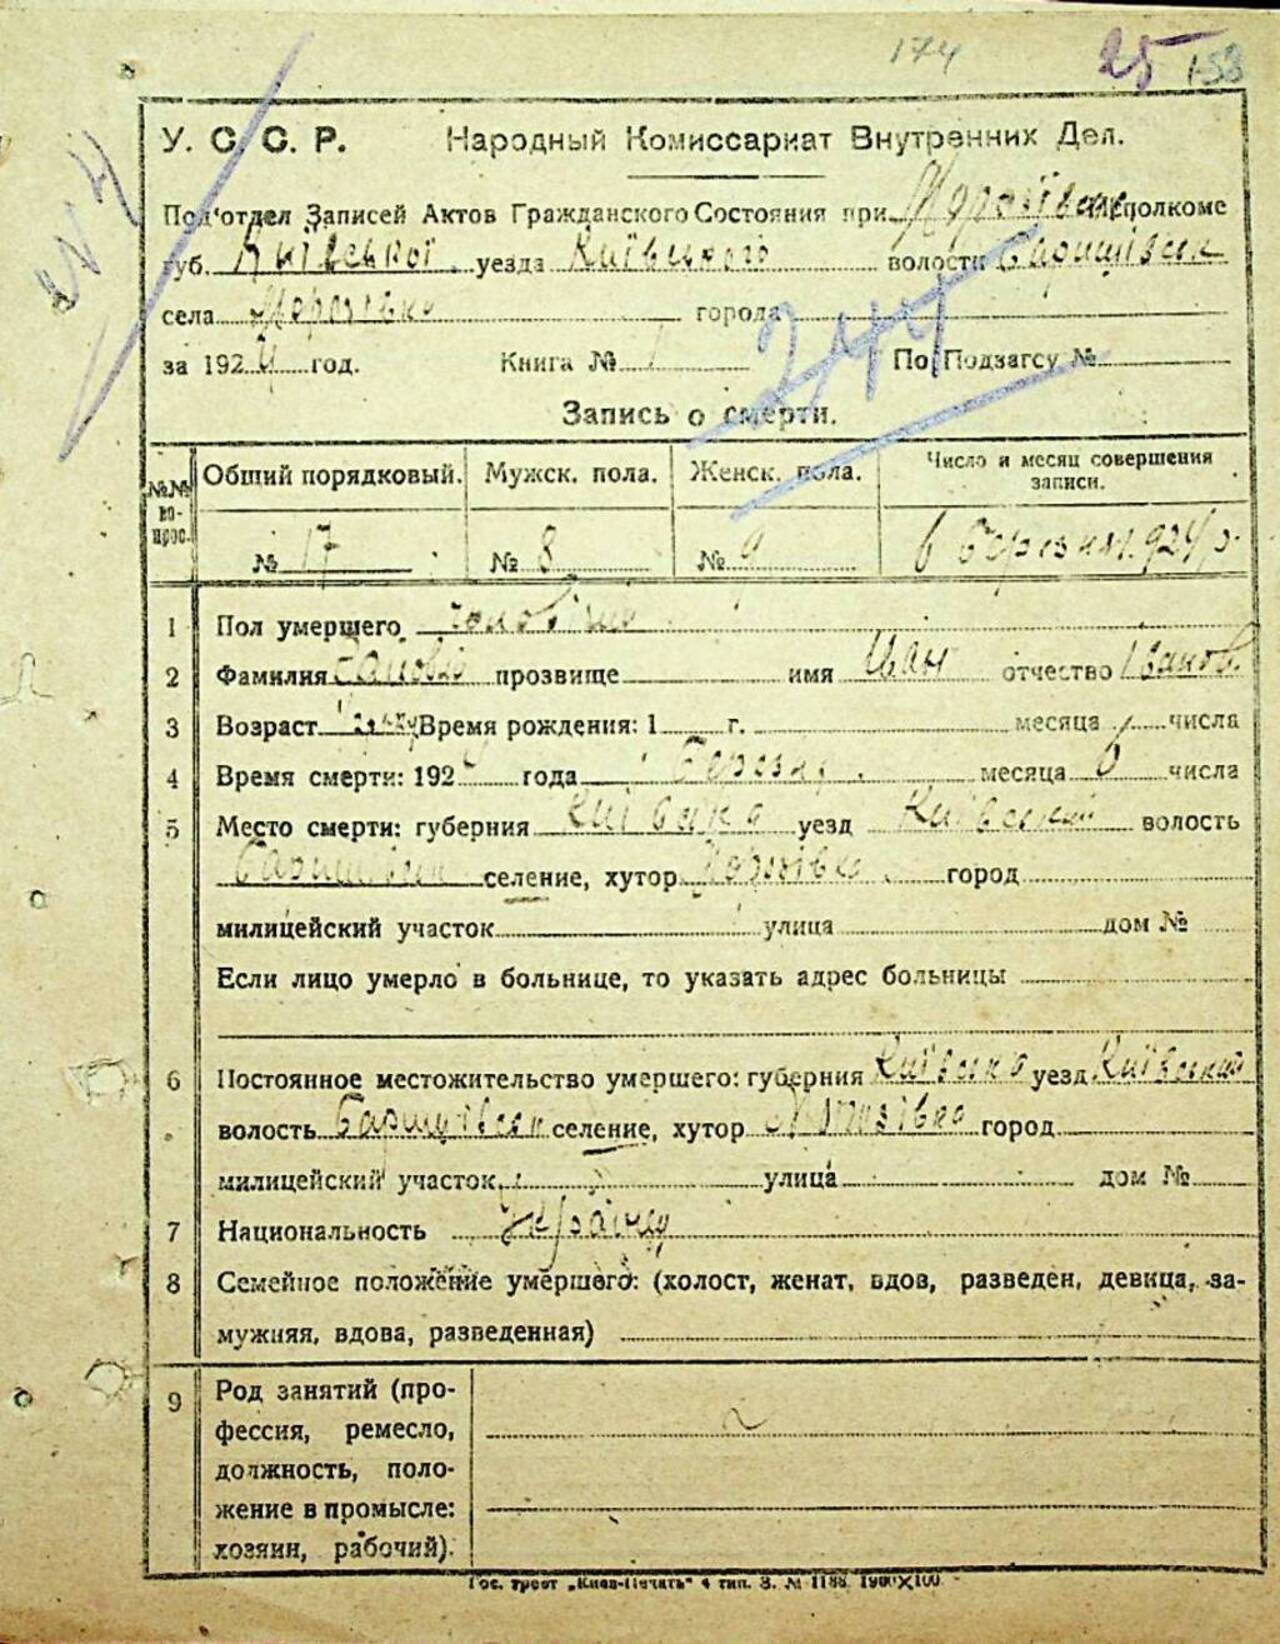 174 25 158
У. С. С. Р. Народный Комиссариат Внутренних Дел.
Под'отдел Записей Актов Гражданского Состояния при Исполкоме
губ. Київської уезда Київського волости
села Морозівка города
за 1924 год. Книга № 1 По Подзагсу №
244
Запись о смерти.
№№ вопрос. Общий порядковый. Мужск. пола. Женск. пола. Число и месяц совершения записи.
№ 17 № 8 № 9 6 Березня 1924 р.
1 Пол умершего
2 Фамилия прозвище имя Иван отчество Іванов.
3 Возраст Время рождения: 1 г. месяца числа
4 Время смерти: 1924 года Березня месяца 6 числа
5 Место смерти: губерния Київська уезд Київский волость
селение, хутор Морозівка город
милицейский участок улица дом №
Если лицо умерло в больнице, то указать адрес больницы
6 Постоянное местожительство умершего: губерния Київська уезд Київский
волость селение, хутор Морозівка город
милицейский участок улица дом №
7 Национальность
8 Семейное положение умершего: (холост, женат, вдов, разведен, девица, за-
мужняя, вдова, разведенная)
9 Род занятий (про-
фессия, ремесло,
должность, поло-
жение в промысле:
хозяин, рабочий).
Гос. трест „Киев-Печать“ 4 тип. З. № 1188